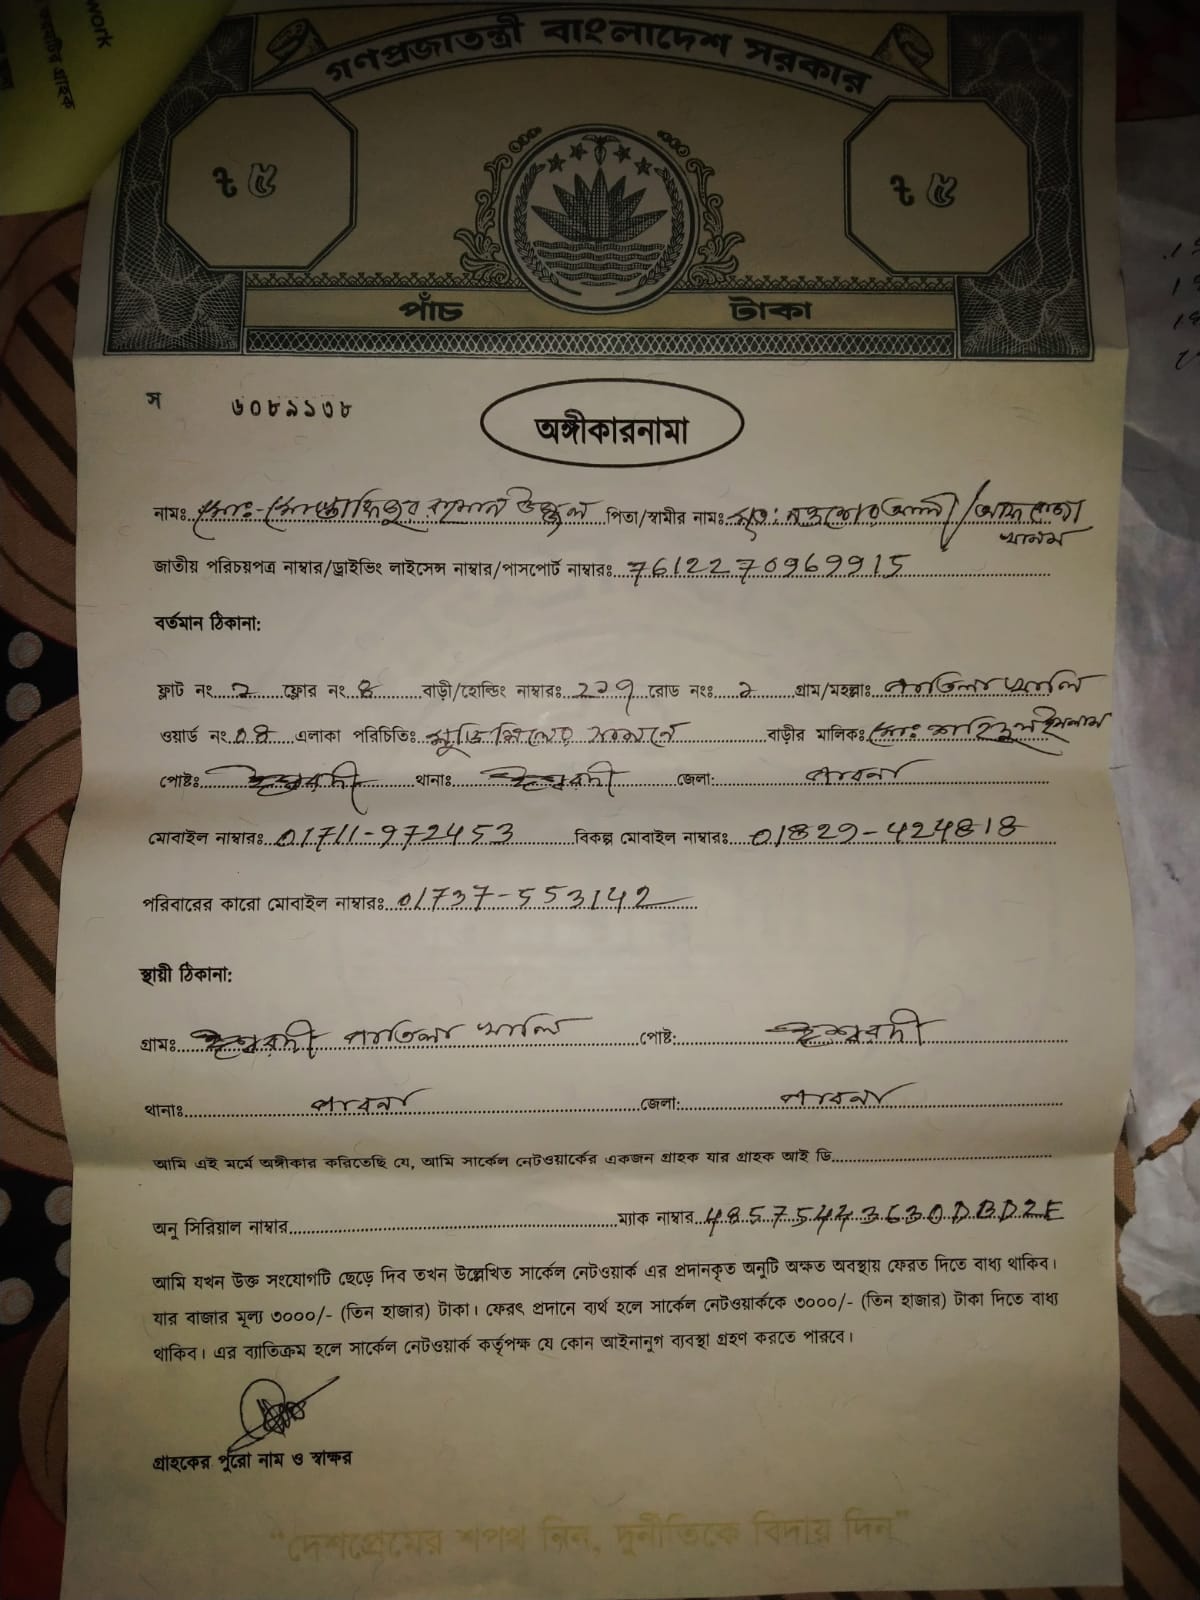 work
গণপ্রজাতন্ত্রী বাংলাদেশ সরকার
৳ ৫ ৳ ৫
পাঁচ টাকা
স ৬০৮৯১৩৮
অঙ্গীকারনামা
নামঃ মোঃ-মোস্তাফিজুর রহমান উজ্জ্বল পিতা/স্বামীর নামঃ মৃত: নওশের আলী/আফরোজা
খানম
জাতীয় পরিচয়পত্র নাম্বার/ড্রাইভিং লাইসেন্স নাম্বার/পাসপোর্ট নাম্বারঃ 7612270969915
বর্তমান ঠিকানা:
ফ্লাট নং ২ ফ্লোর নং ৪ বাড়ী/হোল্ডিং নাম্বারঃ ২১৭ রোড নংঃ ২ গ্রাম/মহল্লাঃ পাতিলাখালি
ওয়ার্ড নং ০৪ এলাকা পরিচিতিঃ মুড়ি মিলের সামনে বাড়ীর মালিকঃ মোঃ শহিদুল ইসলাম
পোষ্টঃ ঈশ্বরদী থানাঃ ঈশ্বরদী জেলা: পাবনা
মোবাইল নাম্বারঃ 01711-972453 বিকল্প মোবাইল নাম্বারঃ 01829-424818
পরিবারের কারো মোবাইল নাম্বারঃ 01737-553142
স্থায়ী ঠিকানা:
গ্রামঃ ঈশ্বরদী পাতিলা খালি পোষ্ট: ঈশ্বরদী
থানাঃ পাবনা জেলা: পাবনা
আমি এই মর্মে অঙ্গীকার করিতেছি যে, আমি সার্কেল নেটওয়ার্কের একজন গ্রাহক যার গ্রাহক আই ডি
অনু সিরিয়াল নাম্বার ম্যাক নাম্বার 48575443630DBD2E
আমি যখন উক্ত সংযোগটি ছেড়ে দিব তখন উল্লেখিত সার্কেল নেটওয়ার্ক এর প্রদানকৃত অনুটি অক্ষত অবস্থায় ফেরত দিতে বাধ্য থাকিব।
যার বাজার মূল্য ৩০০০/- (তিন হাজার) টাকা। ফেরৎ প্রদানে ব্যর্থ হলে সার্কেল নেটওয়ার্ককে ৩০০০/- (তিন হাজার) টাকা দিতে বাধ্য
থাকিব। এর ব্যাতিক্রম হলে সার্কেল নেটওয়ার্ক কর্তৃপক্ষ যে কোন আইনানুগ ব্যবস্থা গ্রহণ করতে পারবে।
গ্রাহকের পুরো নাম ও স্বাক্ষর
"দেশপ্রেমের শপথ নিন, দুর্নীতিকে বিদায় দিন"